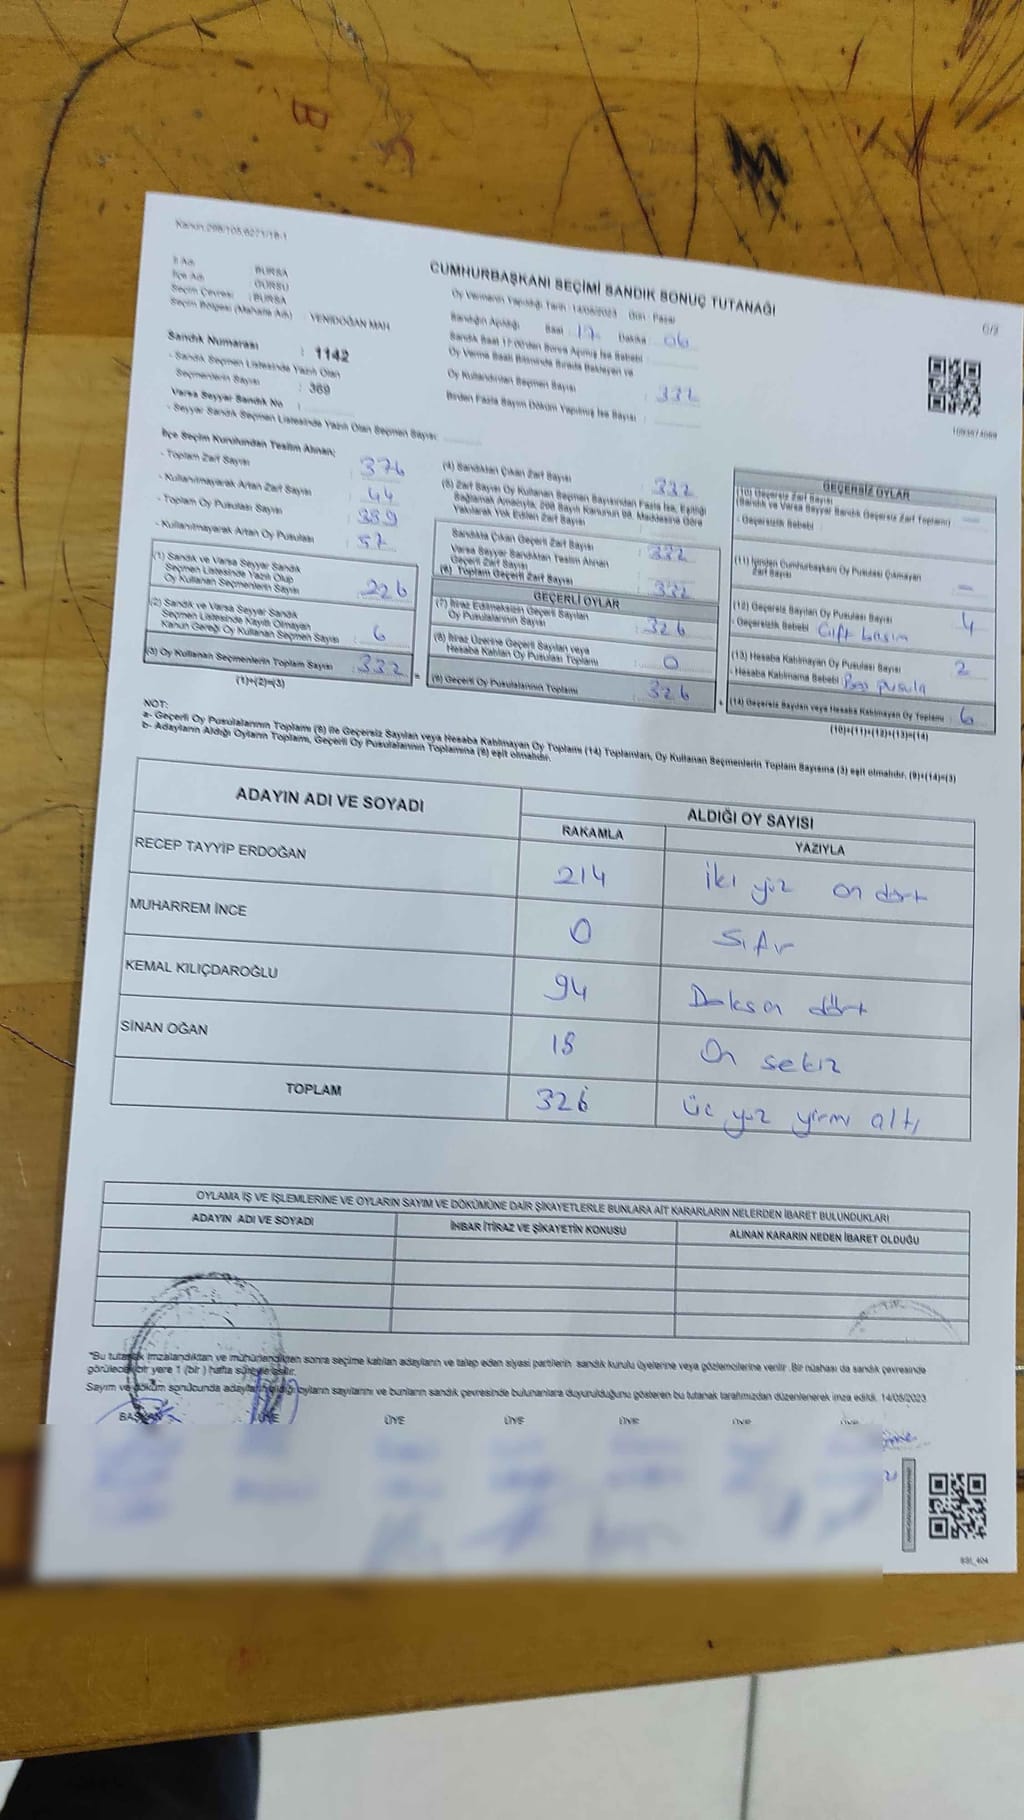 Kanun:298/105,6271/18-1
CUMHURBAŞKANI SEÇİMİ SANDIK SONUÇ TUTANAĞI
İl Adı : BURSA
İlçe Adı : GÜRSU
Seçim Çevresi : BURSA
Seçim Bölgesi (Mahalle Adı) : YENİDOĞAN MAH
Sandık Numarası : 1142
- Sandık Seçmen Listesinde Yazılı Olan
Seçmenlerin Sayısı : 369
Varsa Seyyar Sandık No :
- Seyyar Sandık Seçmen Listesinde Yazılı Olan Seçmen Sayısı
Oy Vermenin Yapıldığı Tarih : 14/05/2023 Gün : Pazar
Sandığın Açıldığı Saat : 17 Dakika : 06
Sandık Saat 17:00'den Sonra Açılmış İse Sebebi
Oy Verme Saati Bitiminde Sırada Bekleyen ve
Oy Kullandırılan Seçmen Sayısı : 332
Birden Fazla Sayım Döküm Yapılmış İse Sayısı :
6/9
İlçe Seçim Kurulundan Teslim Alınan;
- Toplam Zarf Sayısı : 376
- Kullanılmayarak Artan Zarf Sayısı : 44
- Toplam Oy Pusulası Sayısı : 389
- Kullanılmayarak Artan Oy Pusulası : 57
(1) Sandık ve Varsa Seyyar Sandık
Seçmen Listesinde Yazılı Olup
Oy Kullanan Seçmenlerin Sayısı : 226
(2) Sandık ve Varsa Seyyar Sandık
Seçmen Listesinde Kayıtlı Olmayan
Kanun Gereği Oy Kullanan Seçmen Sayısı : 6
(3) Oy Kullanan Seçmenlerin Toplam Sayısı : 332
(1)+(2)=(3)
(4) Sandıktan Çıkan Zarf Sayısı : 332
(5) Zarf Sayısı Oy Kullanan Seçmen Sayısından Fazla İse, Eşitliği
Sağlamak Amacıyla, 298 Sayılı Kanunun 98. Maddesine Göre
Yakılarak Yok Edilen Zarf Sayısı
Sandıkta Çıkan Geçerli Zarf Sayısı : 332
Varsa Seyyar Sandıktan Teslim Alınan
Geçerli Zarf Sayısı
(6) Toplam Geçerli Zarf Sayısı : 332
GEÇERLİ OYLAR
(7) İtiraz Edilmeksizin Geçerli Sayılan
Oy Pusulalarının Sayısı : 326
(8) İtiraz Üzerine Geçerli Sayılan veya
Hesaba Katılan Oy Pusulası Toplamı : 0
(9) Geçerli Oy Pusulalarının Toplamı : 326
GEÇERSİZ OYLAR
(10) Geçersiz Zarf Sayısı
(Sandık ve Varsa Seyyar Sandık Geçersiz Zarf Toplamı) : —
- Geçersizlik Sebebi
(11) İçinden Cumhurbaşkanı Oy Pusulası Çıkmayan
Zarf Sayısı : —
(12) Geçersiz Sayılan Oy Pusulası Sayısı : 4
- Geçersizlik Sebebi Çift basım
(13) Hesaba Katılmayan Oy Pusulası Sayısı : 2
- Hesaba Katılmama Sebebi Boş pusula
(14) Geçersiz Sayılan veya Hesaba Katılmayan Oy Toplamı : 6
(10)+(11)+(12)+(13)=(14)
NOT:
a- Geçerli Oy Pusulalarının Toplamı (9) ile Geçersiz Sayılan veya Hesaba Katılmayan Oy Toplamı (14) Toplamları, Oy Kullanan Seçmenlerin Toplam Sayısına (3) eşit olmalıdır, (9)+(14)=(3)
b- Adayların Aldığı Oyların Toplamı, Geçerli Oy Pusulalarının Toplamına (9) eşit olmalıdır.
ADAYIN ADI VE SOYADI
ALDIĞI OY SAYISI
RAKAMLA YAZIYLA
RECEP TAYYİP ERDOĞAN 214 İki yüz on dört
MUHARREM İNCE 0 Sıfır
KEMAL KILIÇDAROĞLU 94 Doksan dört
SİNAN OĞAN 18 On sekiz
TOPLAM 326 Üç yüz yirmi altı
OYLAMA İŞ VE İŞLEMLERİNE VE OYLARIN SAYIM VE DÖKÜMÜNE DAİR ŞİKAYETLERLE BUNLARA AİT KARARLARIN NELERDEN İBARET BULUNDUKLARI
ADAYIN ADI VE SOYADI İHBAR İTİRAZ VE ŞİKAYETİN KONUSU ALINAN KARARIN NEDEN İBARET OLDUĞU
"Bu tutanak imzalandıktan ve mühürlendikten sonra seçime katılan adayların ve talep eden siyasi partilerin sandık kurulu üyelerine veya gözlemcilerine verilir. Bir nüshası da sandık çevresinde
görülecek bir yere 1 (bir) hafta süreyle asılır.
Sayım ve döküm sonucunda adayların aldığı oyların sayılarını ve bunların sandık çevresinde bulunanlara duyurulduğunu gösteren bu tutanak tarafımızdan düzenlenerek imza edildi. 14/05/2023
BAŞKAN ÜYE ÜYE ÜYE ÜYE ÜYE ÜYE
SSI_404